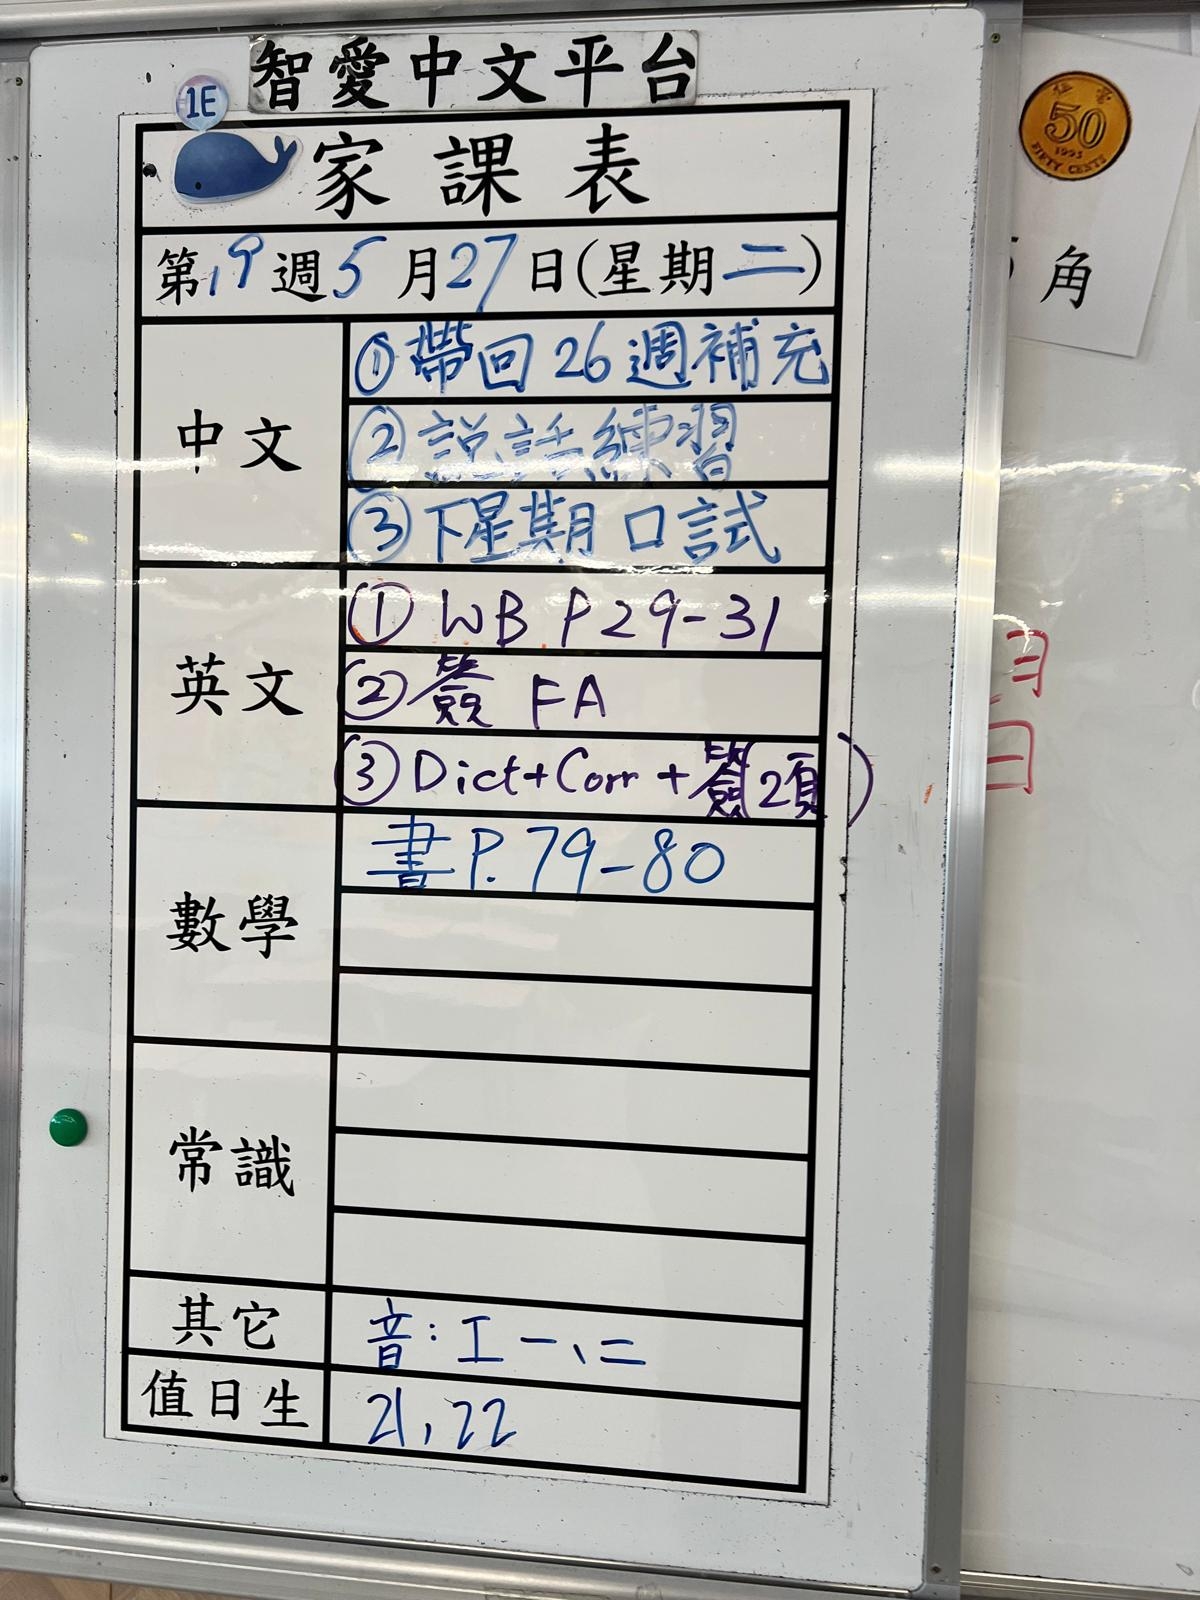 智愛中文平台
1E
家課表
第19週5月27日(星期二)
中文
①帶回26週補充
②說話練習
③下星期口試
英文
① WB P29-31
②簽 FA
③ Dict+Corr+簽(2項)
數學
書P.79-80
常識
其它
音:工一、二
值日生
21,22
伍毫
50
1993
FIFTY CENTS
角